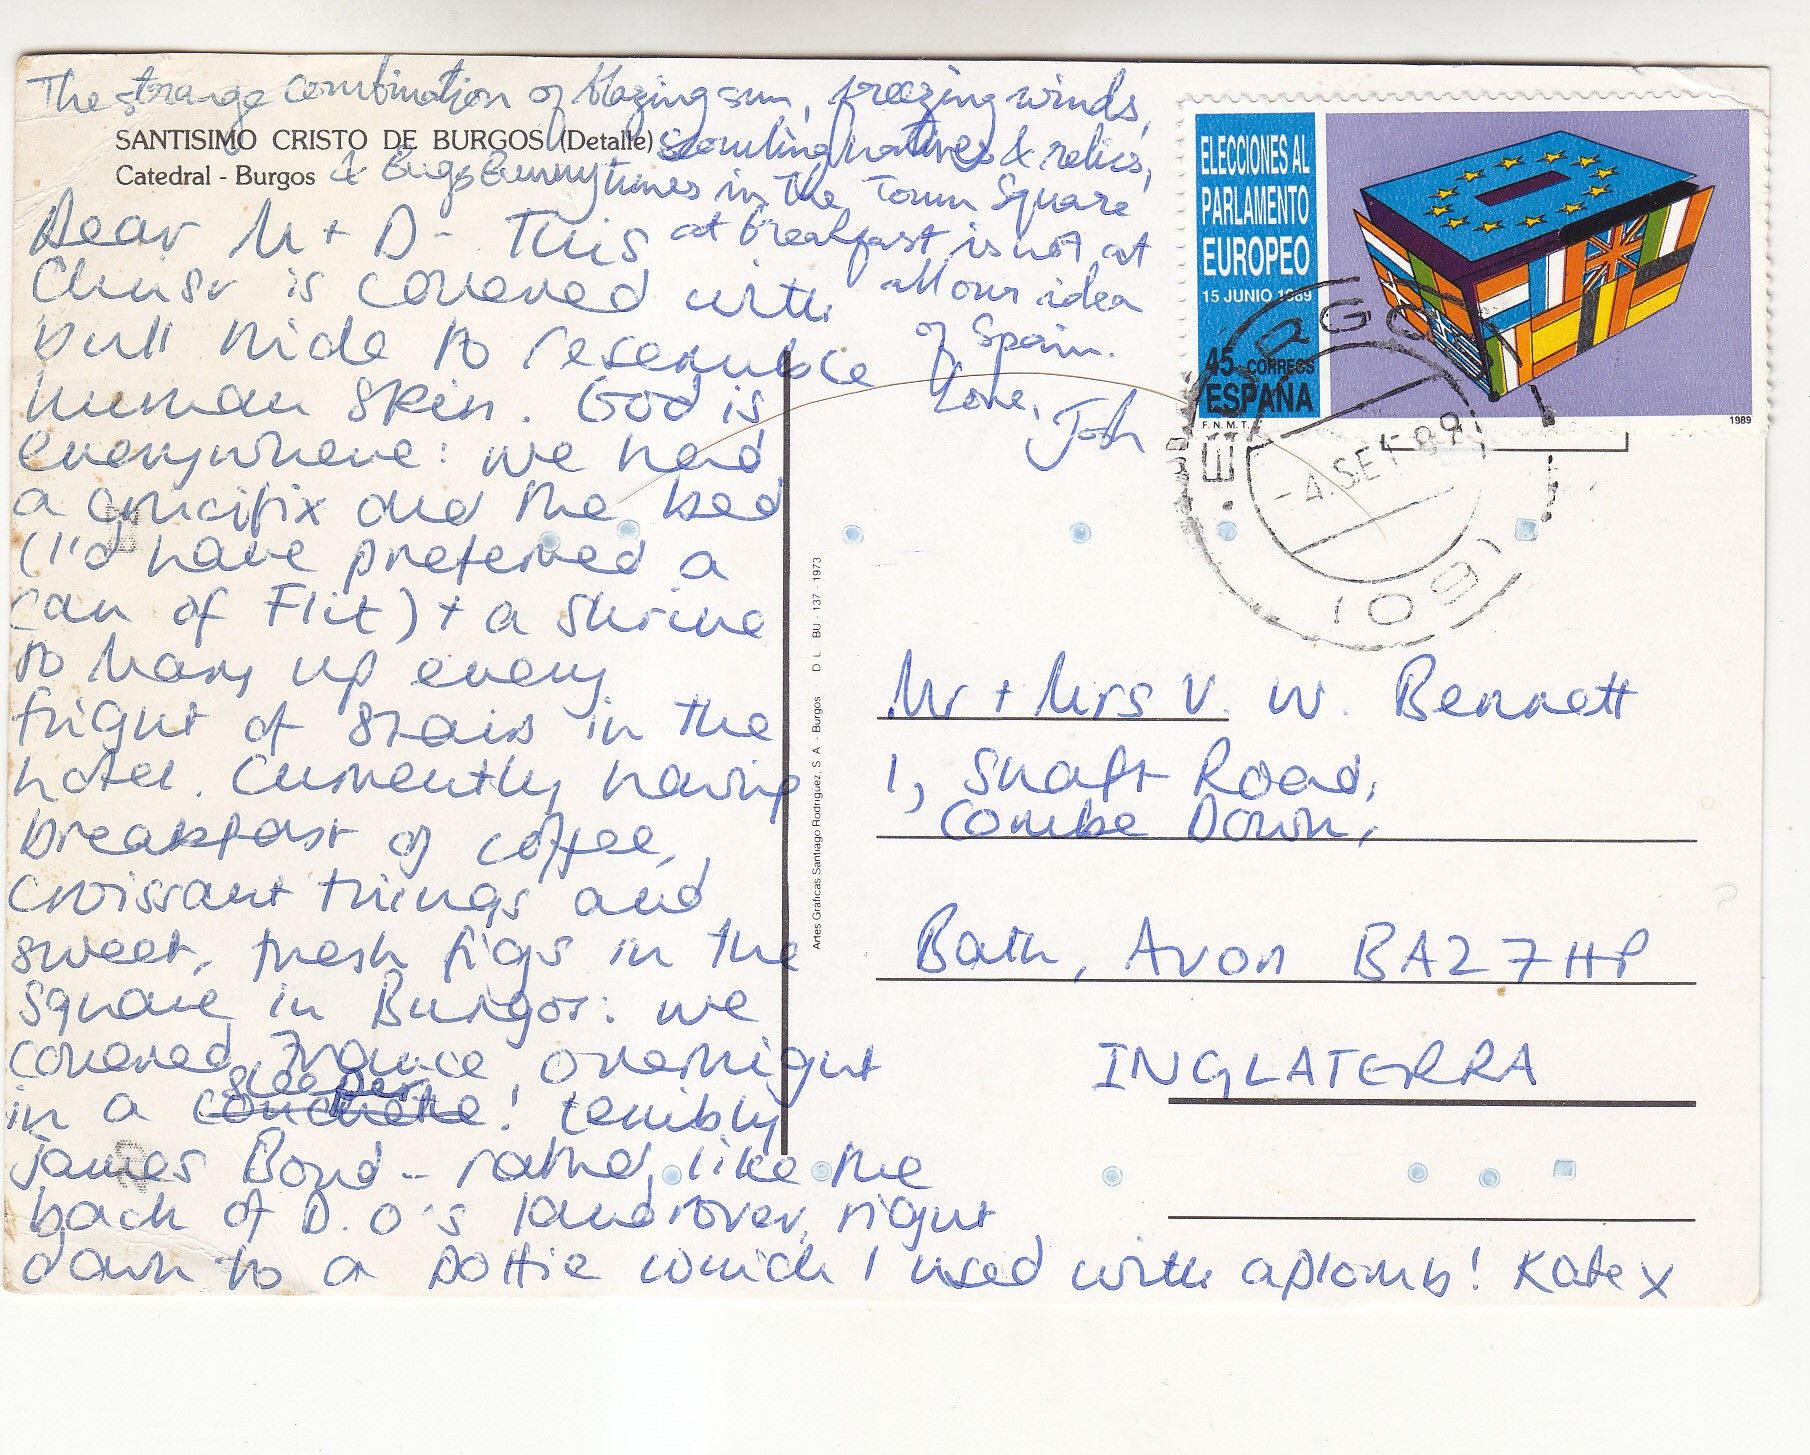 The strange combination of blazing sun, freezing winds,
SANTISIMO CRISTO DE BURGOS (Detalle)
scowling natives & relics,
Catedral - Burgos
& Bugs Bunny tunes in the Town Square
at breakfast is not at
all our idea
of Spain.
Love,
Josh
Dear M + D - This
Christ is covered with
bull hide to resemble
human skin. God is
everywhere: we had
a crucifix and the bed
(I'd have preferred a
can of Flit) + a shrine
to Mary up every
flight of stairs in the
hotel. Currently having
breakfast of coffee,
croissant things and
sweet, fresh figs in the
square in Burgos: we
covered France overnight
sleeper
in a couchette! terribly
James Bond - rather like the
back of D.O's landrover, right
down to a pottie which I used with aplomb! Kate x
ELECCIONES AL
PARLAMENTO
EUROPEO
15 JUNIO 1989
45 CORREOS
ESPAÑA
F.N.M.T.
1989
BURGOS
-4.SET.89
(09)
D L. BU - 137 - 1973
Artes Graficas Santiago Rodriguez, S. A. - Burgos
Mr + Mrs V. W. Bennett
1, Shaft Road,
Combe Down,
Bath, Avon BA2 7HP
INGLATERRA